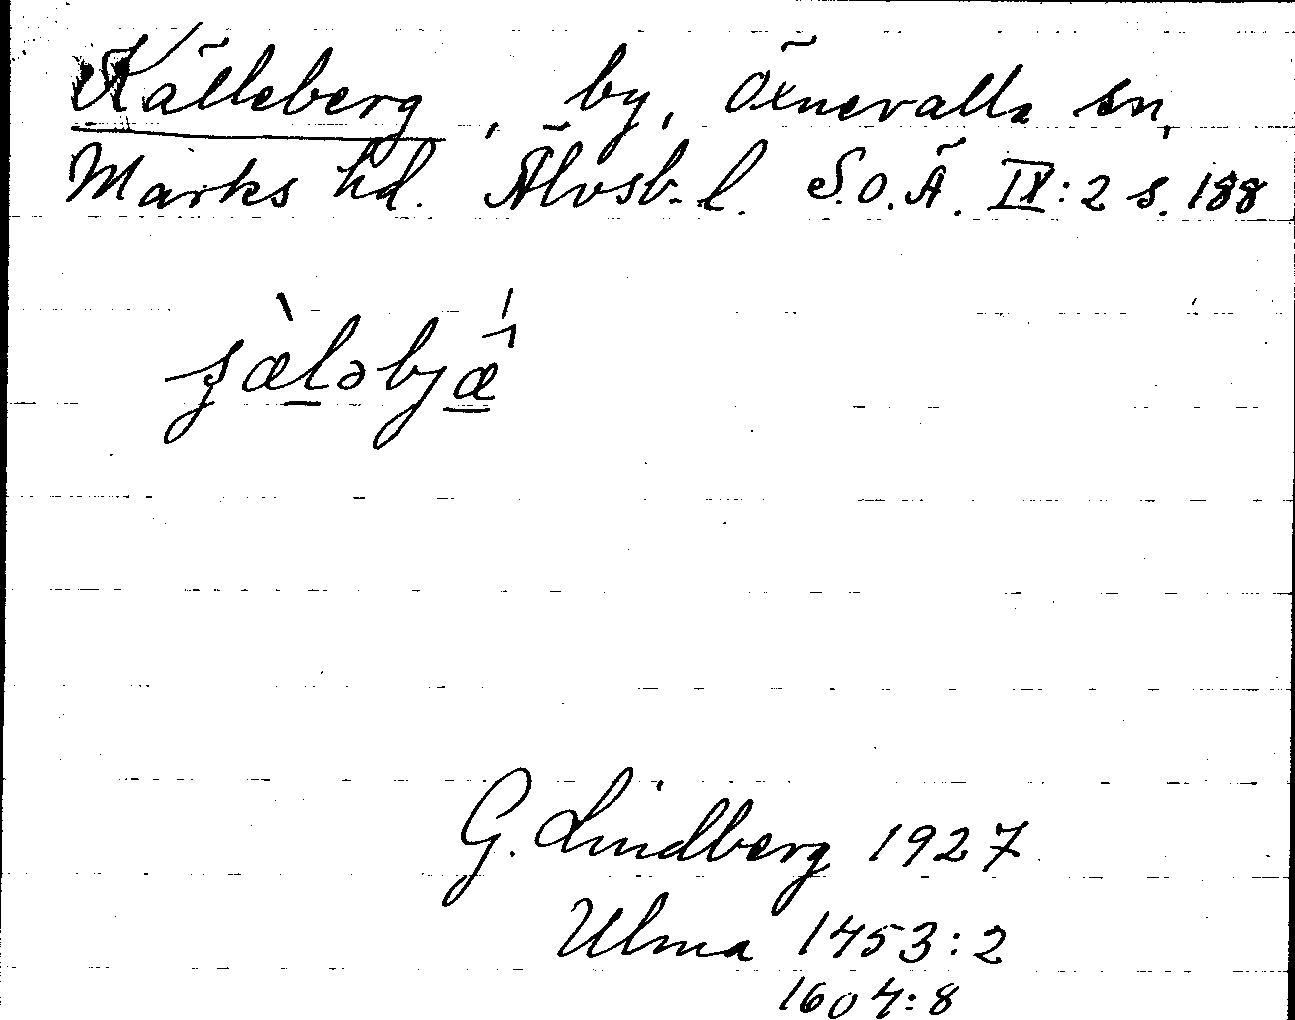 Källeberg, by, Öxnevalla sn,
Marks hd. Älvsb. l. S.O.Ä. IX:2 s. 188
G. Lindberg 1927
Ulma 1453:2
1604:8